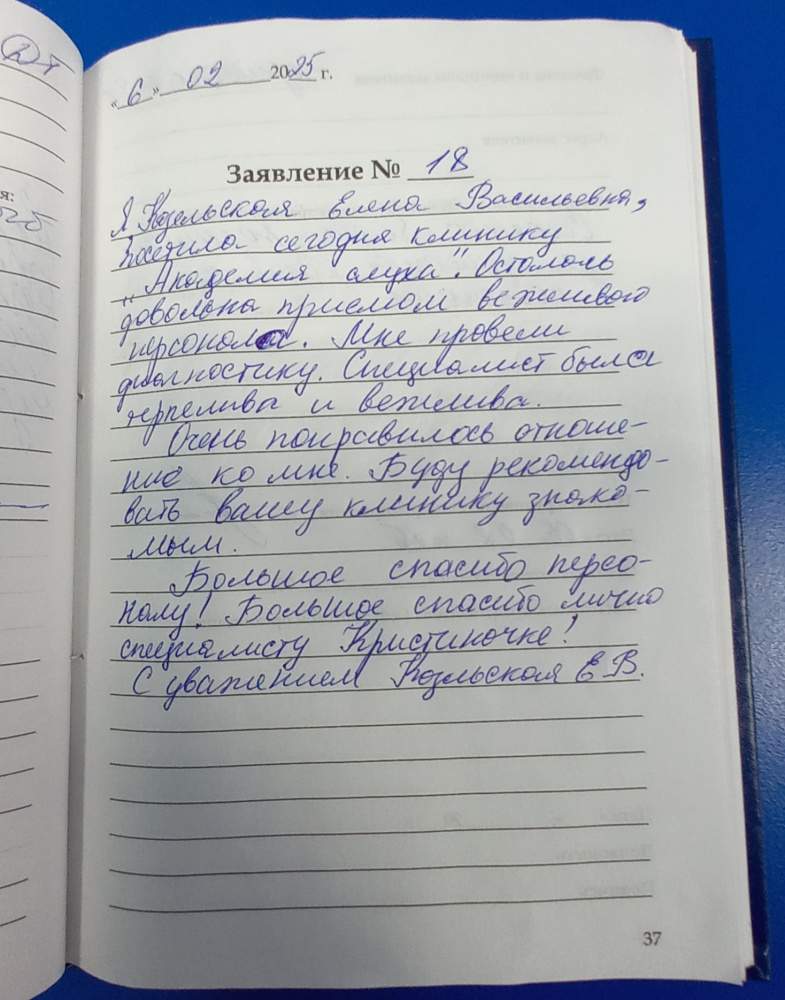 «6» 02 2025 г.
Заявление № 18
Я Козельская Елена Васильевна,
посетила сегодня клинику
"Академия слуха". Осталась
довольна приемом вежливого
персонала. Мне провели
диагностику. Специалист была
терпелива и вежлива.
Очень понравилось отноше-
ние ко мне. Буду рекомендо-
вать вашу клинику знако-
мым.
Большое спасибо персо-
налу! Большое спасибо лично
специалисту Кристиночке!
С уважением Козельская Е В.
37